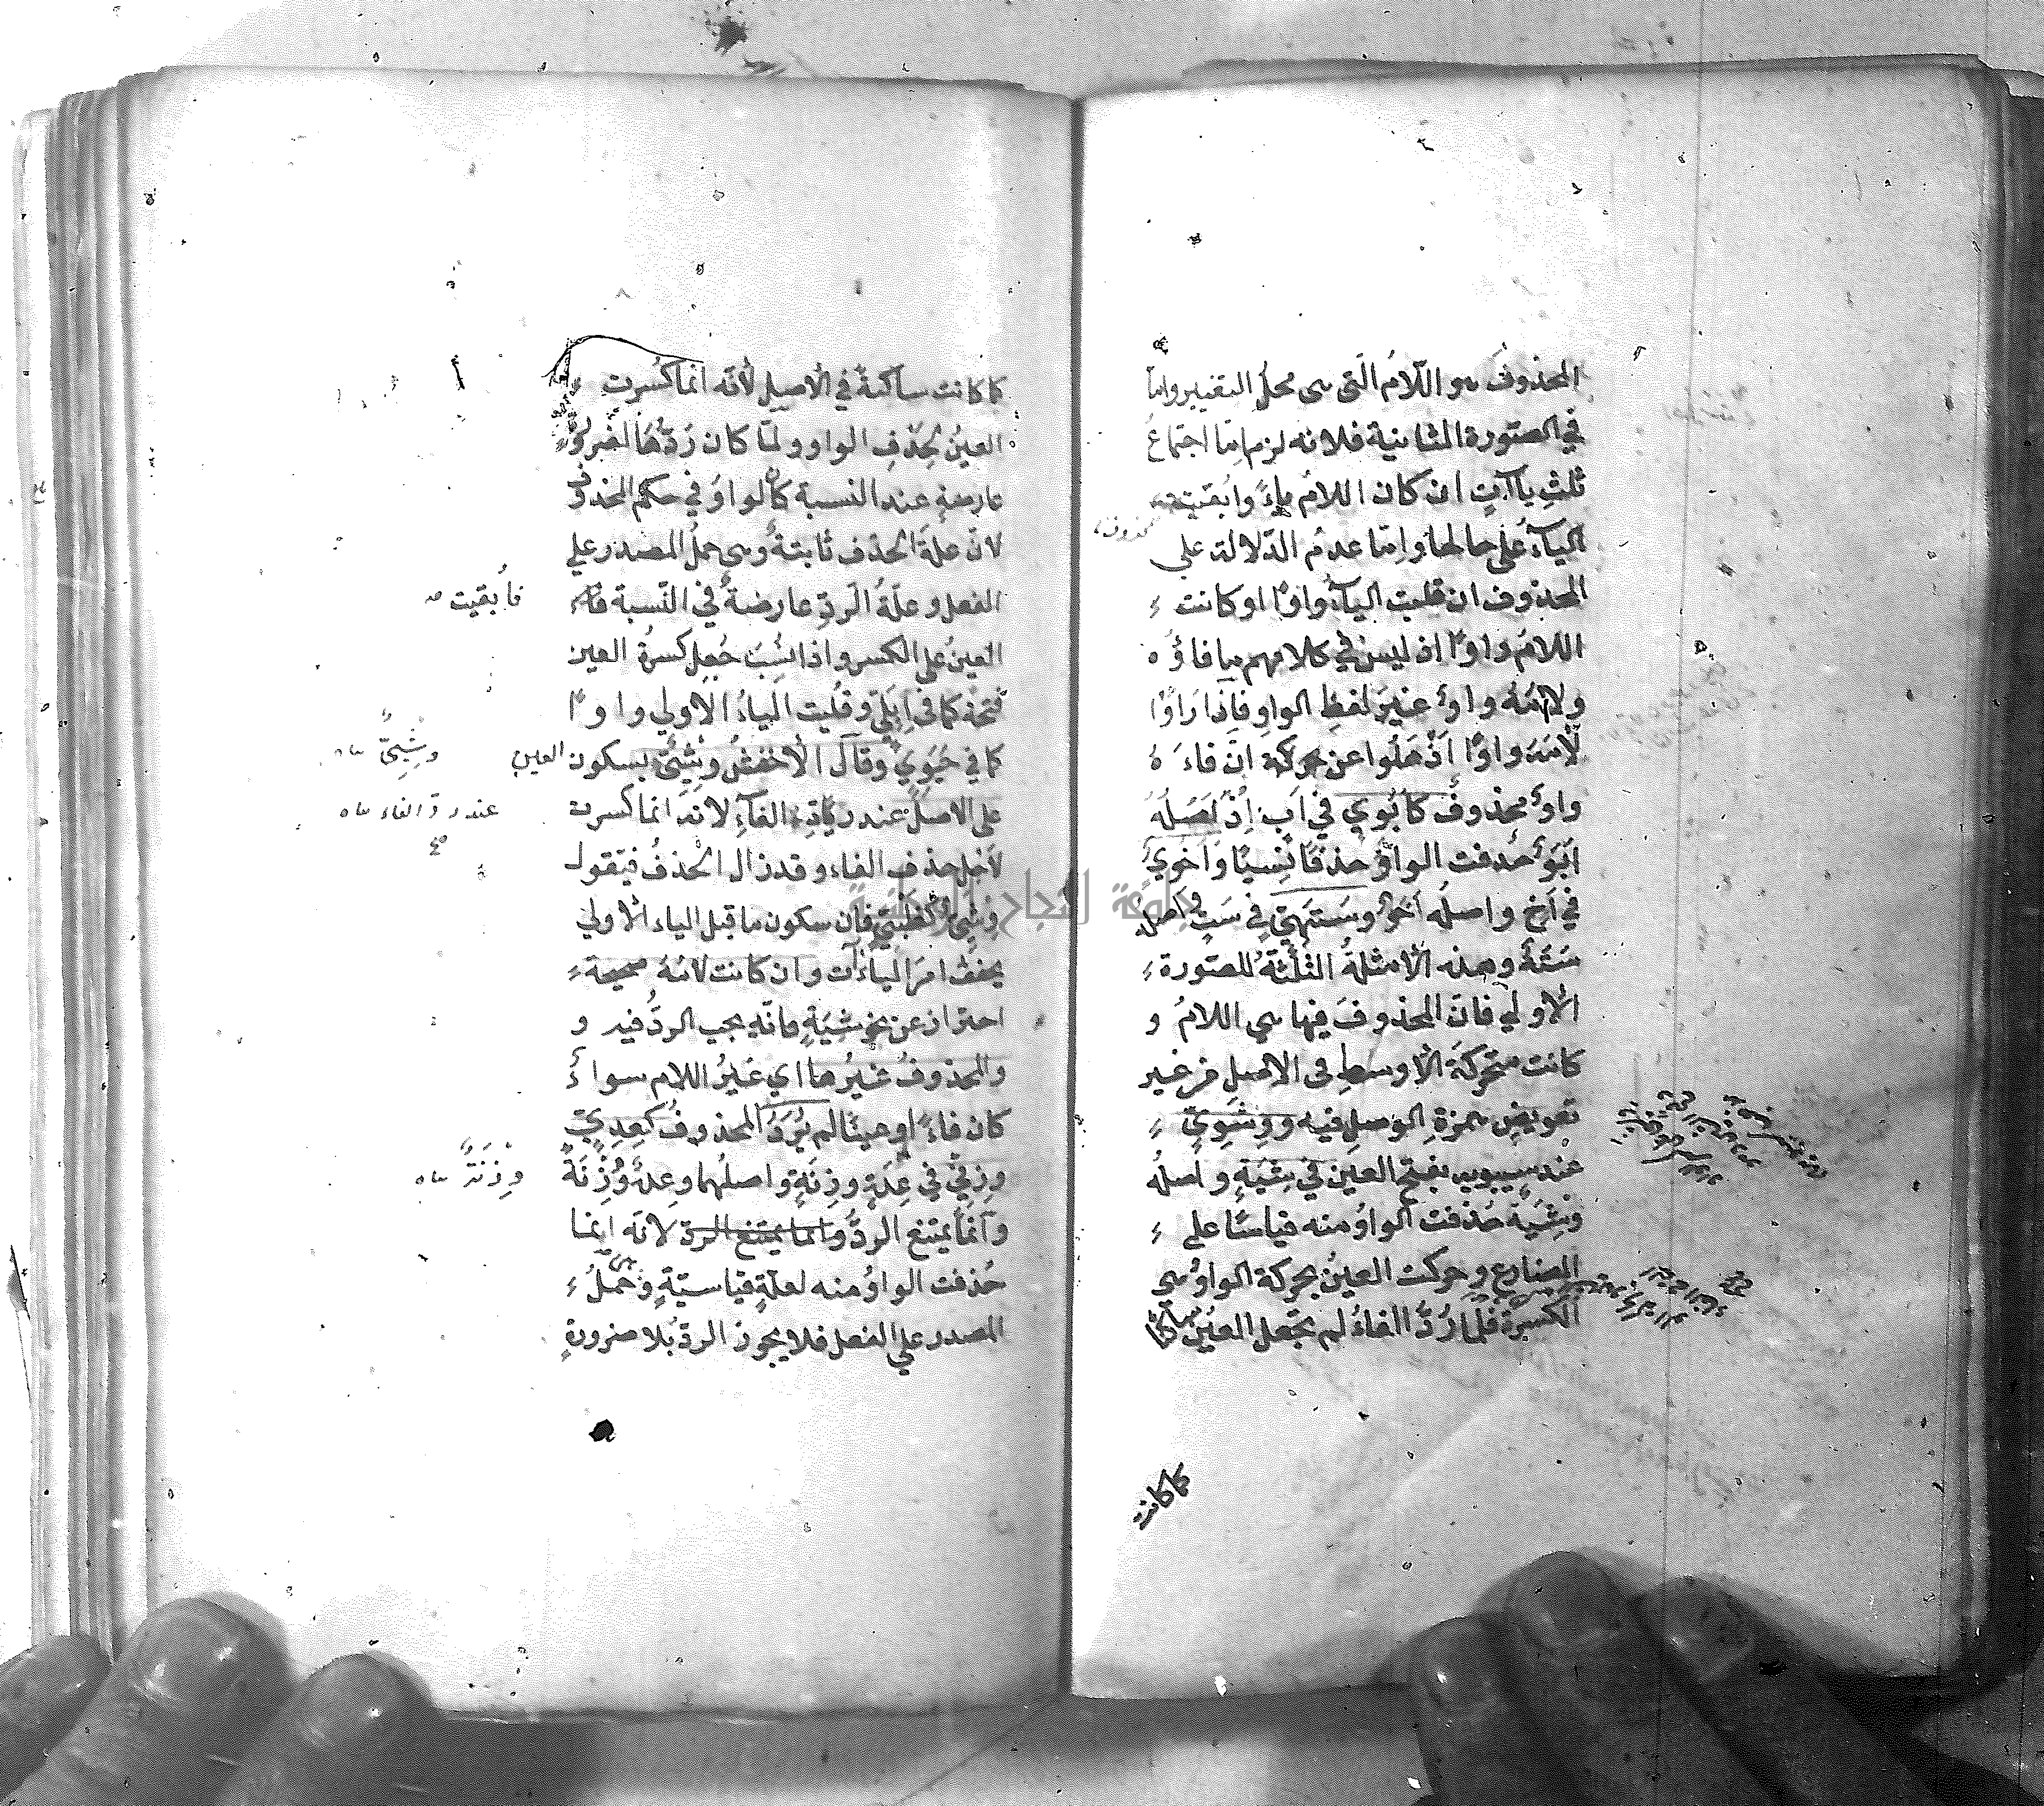 المحذوف هو اللّامُ الّتى هى محلُّ التغيير وامّا
في الصّورة الثانية فلانه لزم امّا اجتماعُ
ثلثِ ياآتٍ ان كان اللامُ ياءً وابُقيت
الياءُ على حالها وامّا عدمُ الدّلالة علي
المحذوف ان قلبت الياءُ واوًا او كانت
اللامُ واوًا اذ ليس في كلامهم ما فاؤُه
ولامُهُ واوٌ غيرَ لفظِ الواوِ فاِذا رَاَوْا
لامَه واوًا اَذْهَلُوا عن حركة انّ فاءَهُ
واوٌ محذوفٌ كاَبَوِيٍّ في اَبٍ اِذْ اَصْلُهُ
اَبَوٌ حُذفت الواوُ حذفًا نِسيًا وَاَخَوِيٍّ
في اَخٍ واصلُه اَخَوٌ وسَتَهِيٍّ في سَتٍ واصلُه
سَتَهٌ وهذه الأمثلةُ الثلثةُ للصّورة
الأولي فانّ المحذوفَ فيها هى اللامُ و
كانت متحرّكةَ الأوسطِ فى الاصلِ من غير
تعويضِ همزةِ الوصلِ فيه ووِشَوِيٍّ
عند سيبويه بفتح العين في شِيَةٍ واصلُه
وِشْيَةٌ حُذفت الواوُ منه قياسًا على
المضارع وحركت العينُ بحركة الواو وهى
الكسرة فلمّا رُدَّ الفاءُ لم تجعل العينُ ساكنًا
كما كانت
محذوف
كما كانت ساكنةً في الأصل لأنّه انّما كُسرت
العينُ بحذفِ الواو ولمّا كان رَدُّهَا لضرورةٍ
عارضةٍ عند النسبة كان الواوُ في حكم المحذوف
لانّ علّةَ الحذف ثابتةٌ وهى حملُ المصدر علي
الفعل وعلّةُ الردِّ عارضةٌ في النّسبة
العينُ على الكسر واذا نُسِبَ جُعِل كسرةُ العين
فتحةً كما فى اِبِلِيٍّ وقُلبت الياءُ الاولي واوًا
كما في حَيَوِيٍّ وقال الأخفشُ وِشْيِيٌّ بسكون العين
على الاصل عند ردّ الفاءِ لانّه انّما كسرت
لاَجل حذف الفاء وقد زال الحذفُ فيقول
وِشْيِيٌّ كظَبْيِيٍّ فانّ سكون ما قبل الياء الأولي
يخفّف امرَ الياءآت وان كانت لامُهُ صحيحةً
احتراز عن نحو شِيَةٍ فانّه يجب الردُّ فيه و
والمحذوفُ غيرُها اي غَيرُ اللام سواءٌ
كان فاءً او عينًا لم يُرَدَّ المحذوفُ كعِدِيٍّ
وزِنِيٍّ في عِدَةٍ وزِنَةٍ واصلُهما وِعدَةٌ وَوِزْنَةٌ
وانّما يمتنع الردُّ وانّما يمتنع الردّ لانّه انّما
حُذفت الواوُ منه لعلّةٍ قياسيّةٍ وهى حملُ
المصدر علي الفعل فلا يجوز الردُّ بلا ضرورةٍ
فأُبقيت صه
وِشْيِيٌّ
عند ردّ الفاء
وِزْنَةٌ
جامعة النجاح الوطنية